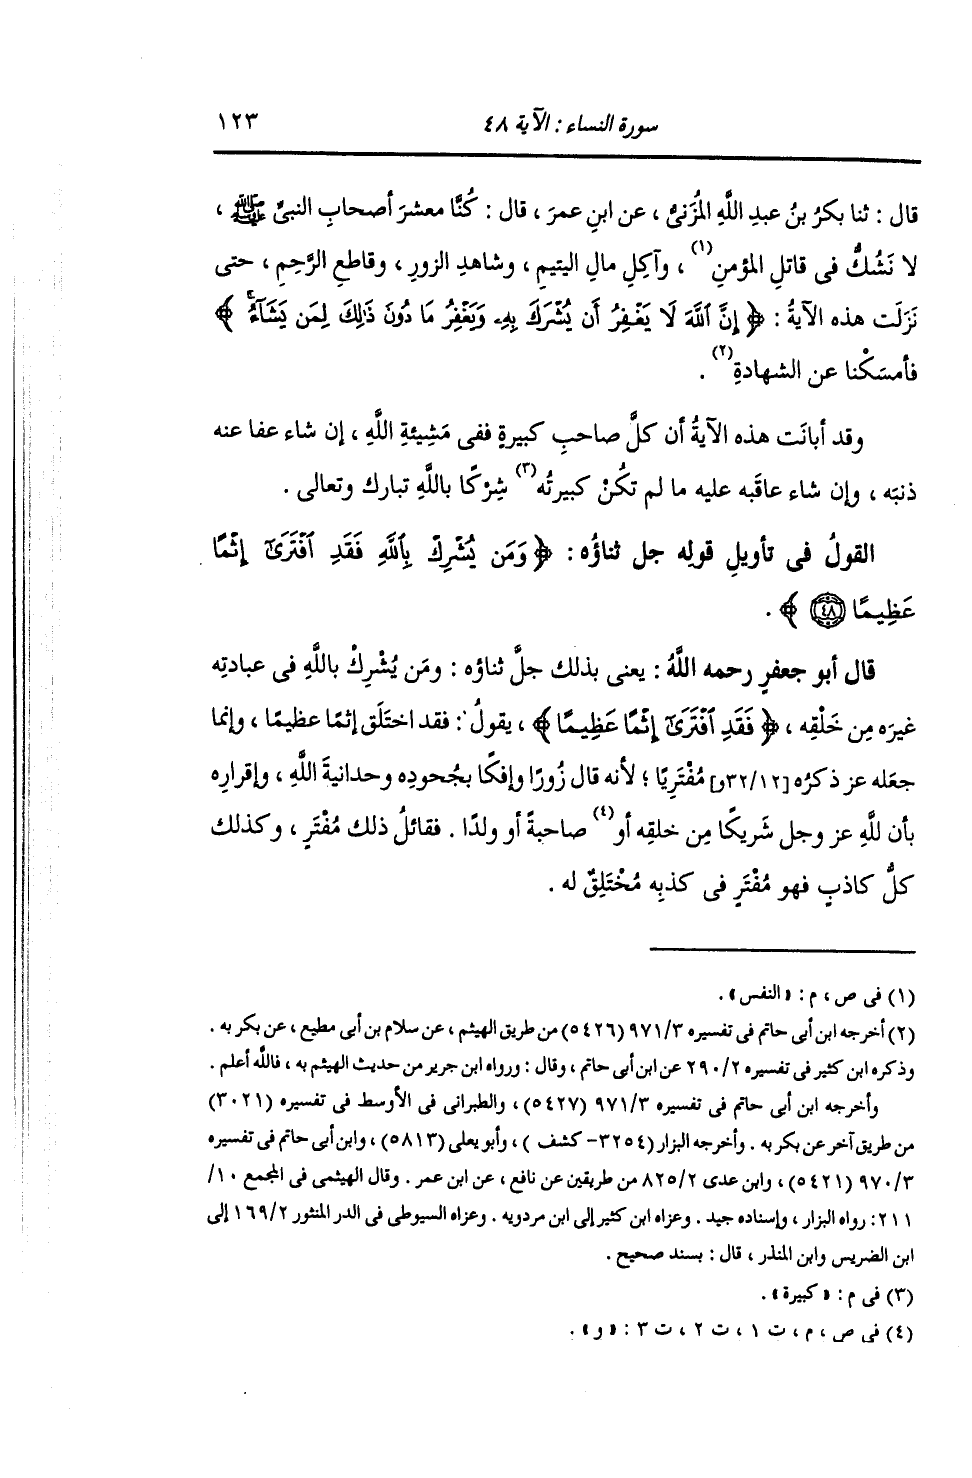 سورة النساء : الآية ٤٨ ١٢٣
قال : ثنا بكرُ بنُ عبدِ اللَّهِ المُزَنىُّ ، عن ابنِ عمرَ ، قال : كُنَّا معشرَ أصحابِ النبىِّ ﷺ ،
لا نَشُكُّ فى قاتلِ المؤمنِ(١) ، وآكِلِ مالِ اليتيمِ ، وشاهدِ الزورِ ، وقاطعِ الرَّحِمِ ، حتى
نزَلَت هذه الآيةُ : ﴿ إِنَّ ٱللَّهَ لَا يَغْفِرُ أَن يُشْرَكَ بِهِۦ وَيَغْفِرُ مَا دُونَ ذَٰلِكَ لِمَن يَشَآءُۚ ﴾
فأمسَكْنا عن الشهادةِ(٢) .
وقد أبانَت هذه الآيةُ أن كلَّ صاحبِ كبيرةٍ ففى مَشِيئةِ اللَّهِ ، إن شاء عفا عنه
ذنبَه ، وإن شاء عاقَبه عليه ما لم تكُنْ كبيرتُه(٣) شِرْكًا باللَّهِ تبارك وتعالى .
القولُ فى تأويلِ قولِه جل ثناؤُه : ﴿ وَمَن يُشْرِكْ بِٱللَّهِ فَقَدِ ٱفْتَرَىٰٓ إِثْمًا
عَظِيمًا ٤٨ ﴾ .
قال أبو جعفرٍ رحمه اللَّهُ : يعنى بذلك جلَّ ثناؤه : ومَن يُشْرِكْ باللَّهِ فى عبادتِه
غيرَه مِن خَلْقِه ، ﴿ فَقَدِ ٱفْتَرَىٰٓ إِثْمًا عَظِيمًا ﴾ ، يقولُ : فقد اختَلَق إثمًا عظيمًا ، وإنما
جعَله عز ذكرُه [٣٢/١٢و] مُفْتَرِيًا ؛ لأنه قال زُورًا وإفكًا بجُحودِه وحدانيةَ اللَّهِ ، وإقرارِه
بأن للَّهِ عز وجل شَرِيكًا مِن خلقِه أو(٤) صاحبةً أو ولدًا . فقائلُ ذلك مُفْتَرٍ ، وكذلك
كلُّ كاذبٍ فهو مُفْتَرٍ فى كذبِه مُخْتَلِقٌ له .
(١) فى ص ، م : « النفس » .
(٢) أخرجه ابن أبى حاتم فى تفسيره ٩٧١/٣ (٥٤٢٦) من طريق الهيثم ، عن سلام بن أبى مطيع ، عن بكر به .
وذكره ابن كثير فى تفسيره ٢٩٠/٢ عن ابن أبى حاتم ، وقال : ورواه ابن جرير من حديث الهيثم به ، فاللَّه أعلم .
وأخرجه ابن أبى حاتم فى تفسيره ٩٧١/٣ (٥٤٢٧) ، والطبرانى فى الأوسط فى تفسيره (٣٠٢١)
من طريق آخر عن بكر به . وأخرجه البزار (٣٢٥٤ – كشف ) ، وأبو يعلى (٥٨١٣) ، وابن أبى حاتم فى تفسيره
٩٧٠/٣ (٥٤٢١) ، وابن عدى ٨٢٥/٢ من طريقين عن نافع ، عن ابن عمر . وقال الهيثمى فى المجمع ١٠/
٢١١: رواه البزار ، وإسناده جيد . وعزاه ابن كثير إلى ابن مردويه . وعزاه السيوطى فى الدر المنثور ١٦٩/٢ إلى
ابن الضريس وابن المنذر ، قال : بسند صحيح .
(٣) فى م : « كبيرة » .
(٤) فى ص ، م ، ت ١ ، ت ٢ ، ت ٣ : « و » .